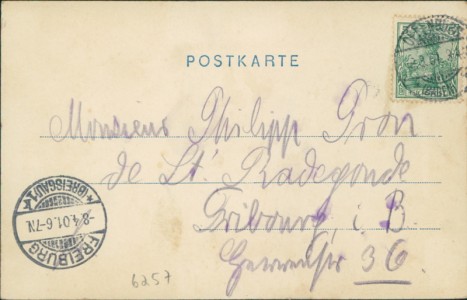 POSTKARTE
OFFENBURG
(BADEN)
Monsieur Philipp Gron
de St. Radegonde
Fribourg i. B.
36
FREIBURG
(BREISGAU) 1
-8.4.01.6-7N.
6257